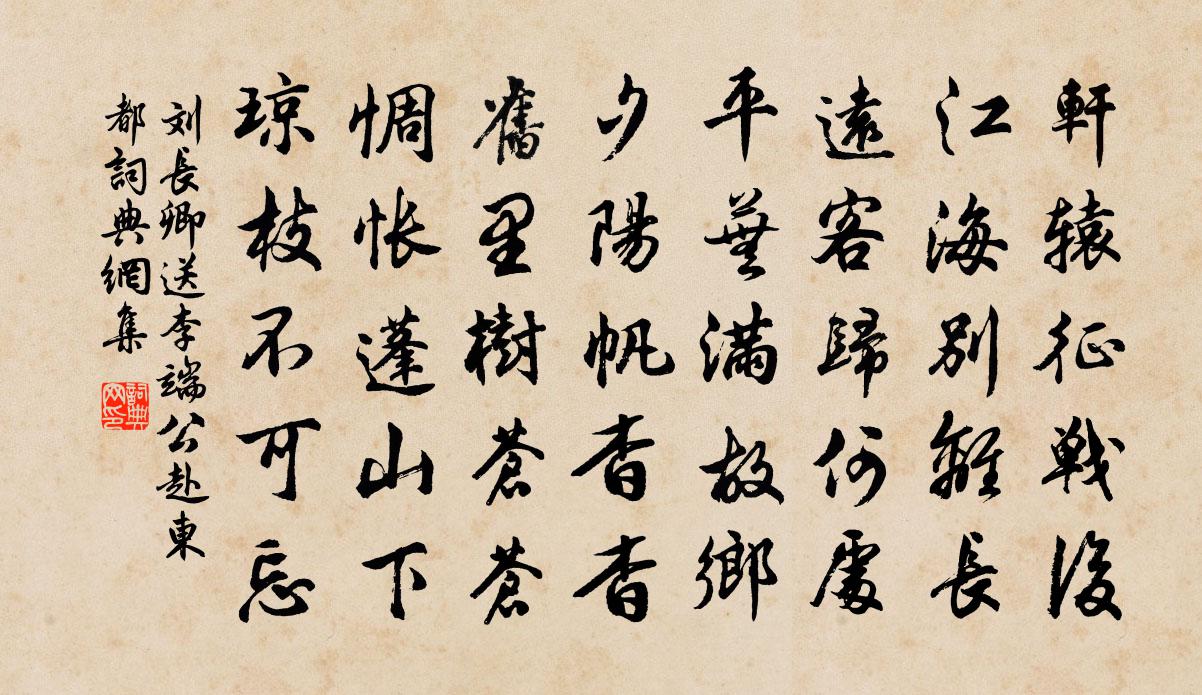 軒辕征戦後
江海别離長
遠客歸何處
平蕪满故鄉
夕陽帆杳杳
舊里樹蒼蒼
惆怅蓬山下
琼枝不可忘
刘長卿送李端公赴東
都詞典網集
詞典
网印